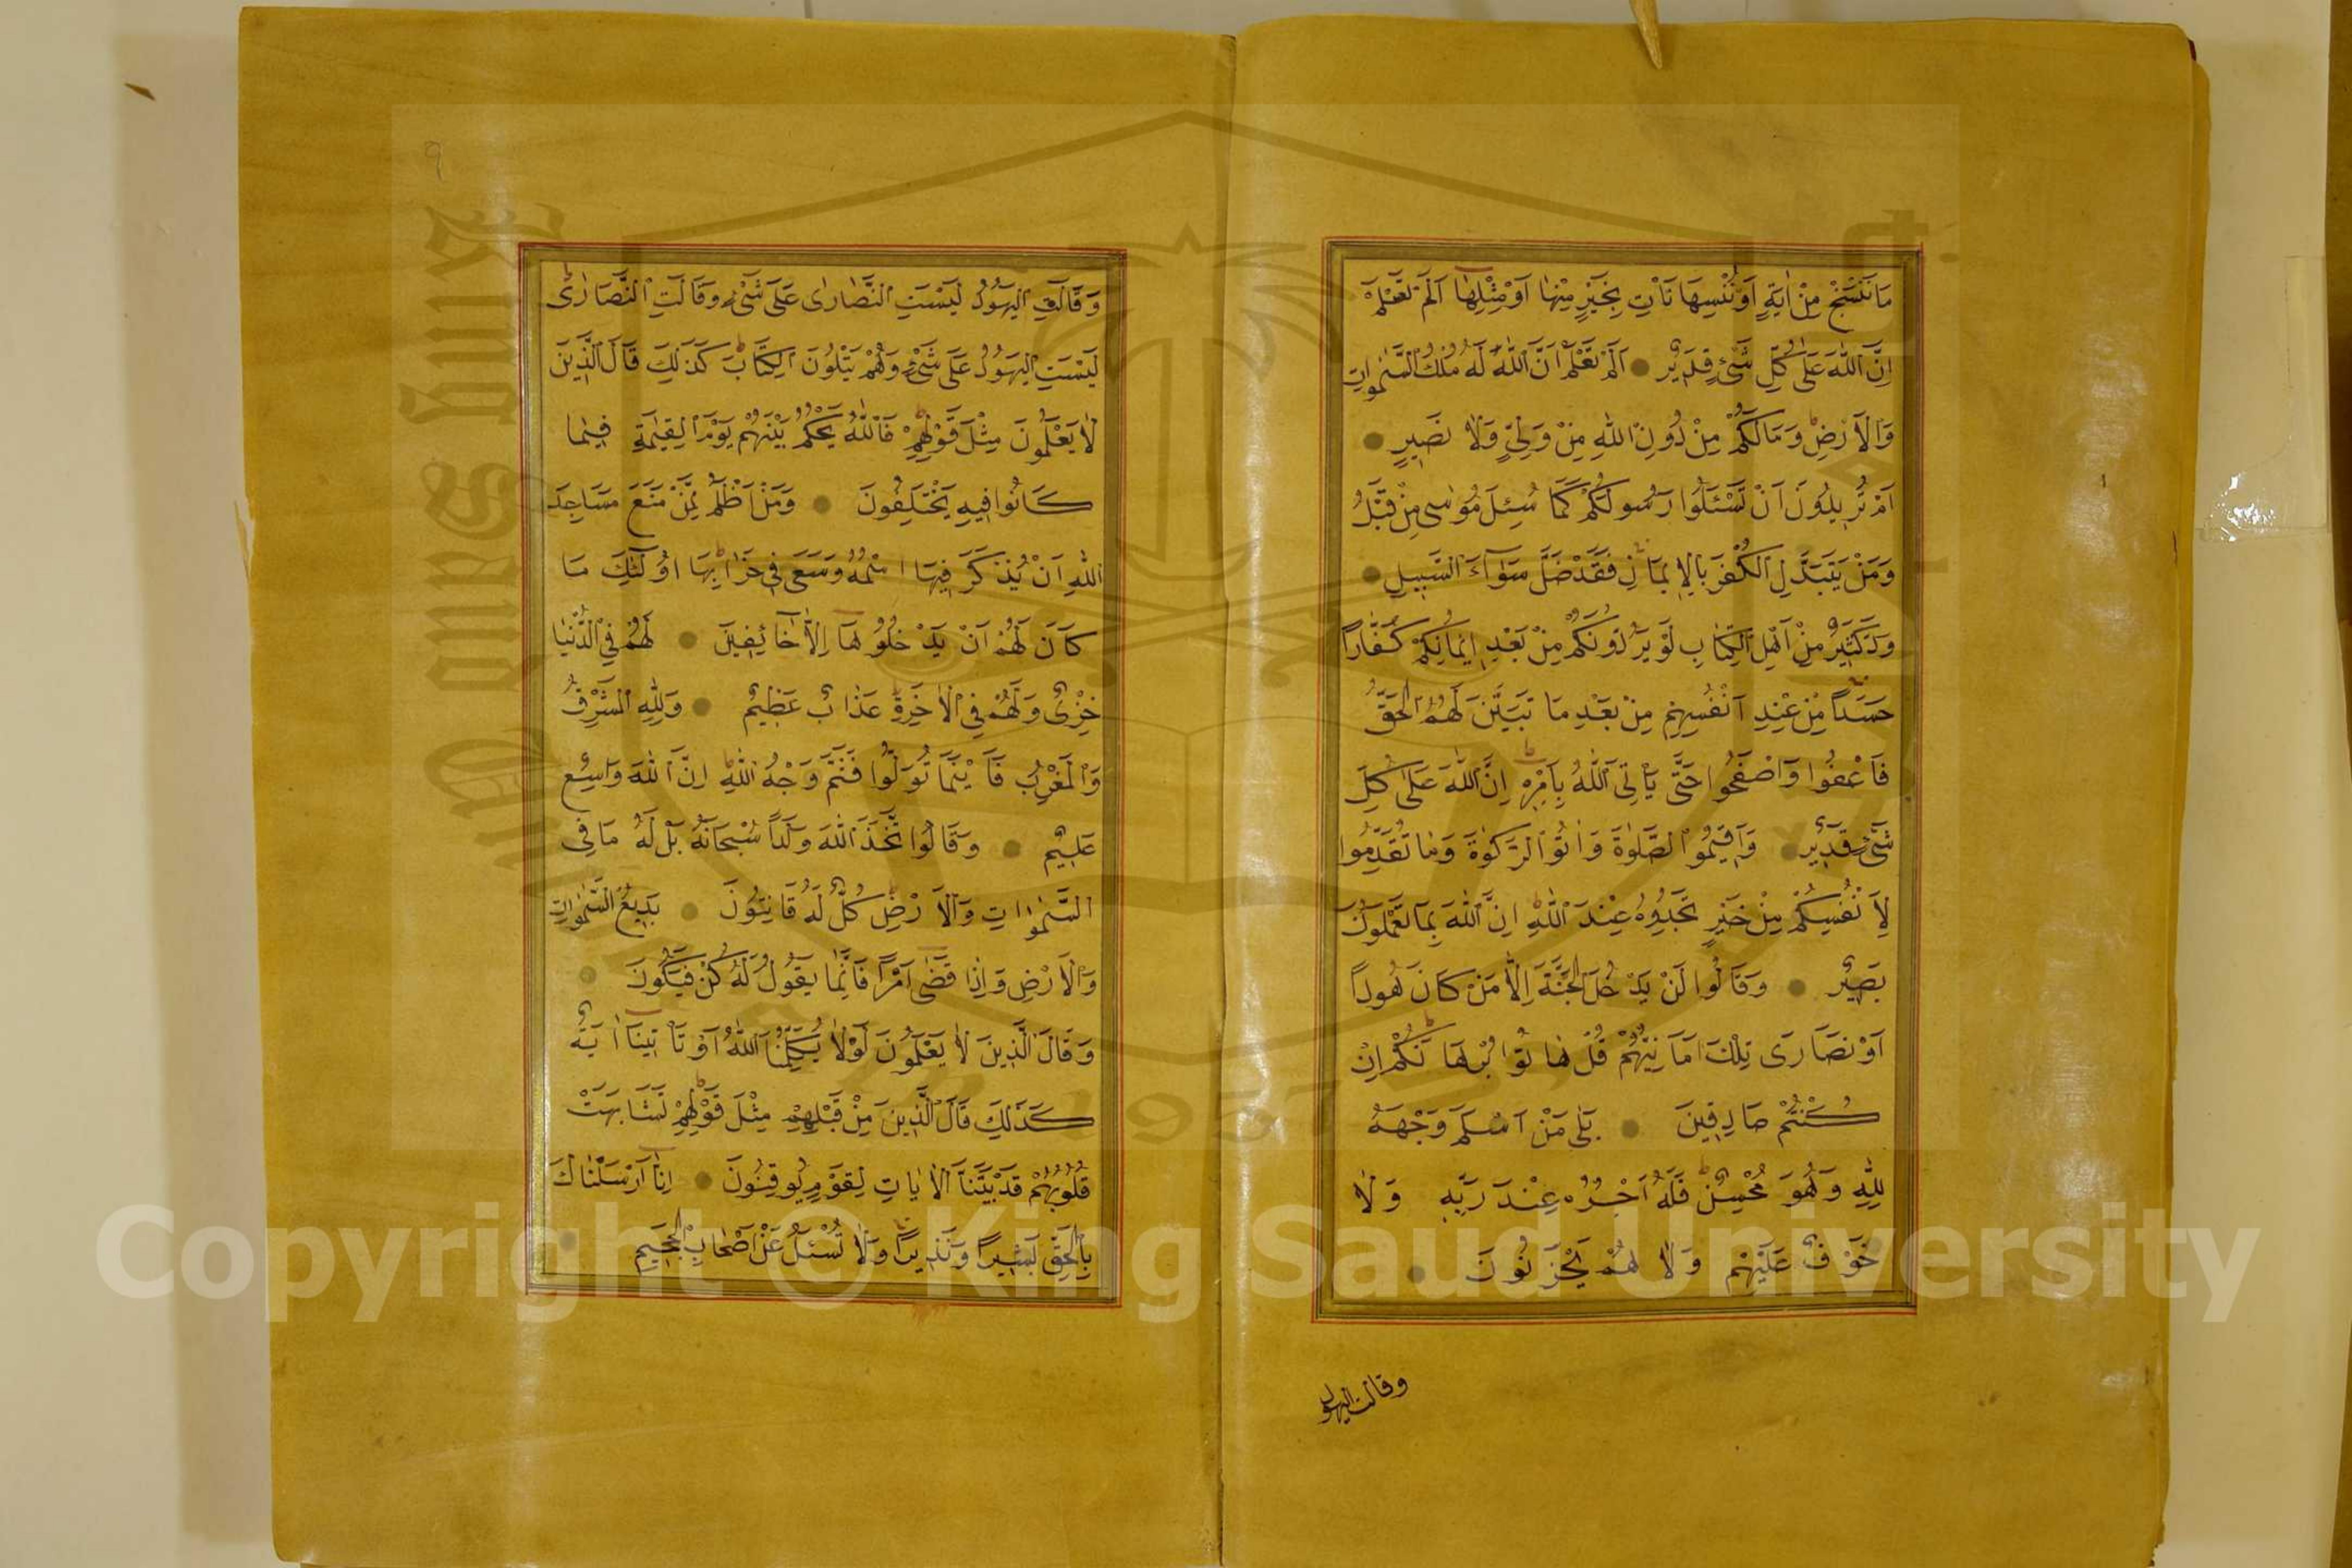 مَا نَنْسَخْ مِنْ اٰيَةٍ اَوْ نُنْسِهَا نَأْتِ بِخَيْرٍ مِنْهَا اَوْ مِثْلِهَا اَلَمْ تَعْلَمْ
اِنَّ اللّٰهَ عَلٰى كُلِّ شَيْءٍ قَدِيرٌ اَلَمْ تَعْلَمْ اَنَّ اللّٰهَ لَهُ مُلْكُ السَّمٰوَاتِ
وَالْاَرْضِ وَمَا لَكُمْ مِنْ دُونِ اللّٰهِ مِنْ وَلِيٍّ وَلَا نَصِيرٍ
اَمْ تُرِيدُونَ اَنْ تَسْئَلُوا رَسُولَكُمْ كَمَا سُئِلَ مُوسٰى مِنْ قَبْلُ
وَمَنْ يَتَبَدَّلِ الْكُفْرَ بِالْاِيمَانِ فَقَدْ ضَلَّ سَوَآءَ السَّبِيلِ
وَدَّ كَثِيرٌ مِنْ اَهْلِ الْكِتَابِ لَوْ يَرُدُّونَكُمْ مِنْ بَعْدِ اِيمَانِكُمْ كُفَّارًا
حَسَدًا مِنْ عِنْدِ اَنْفُسِهِمْ مِنْ بَعْدِ مَا تَبَيَّنَ لَهُمُ الْحَقُّ
فَاعْفُوا وَاصْفَحُوا حَتّٰى يَأْتِيَ اللّٰهُ بِاَمْرِهِ اِنَّ اللّٰهَ عَلٰى كُلِّ
شَيْءٍ قَدِيرٌ وَاَقِيمُوا الصَّلٰوةَ وَاٰتُوا الزَّكٰوةَ وَمَا تُقَدِّمُوا
لِاَنْفُسِكُمْ مِنْ خَيْرٍ تَجِدُوهُ عِنْدَ اللّٰهِ اِنَّ اللّٰهَ بِمَا تَعْمَلُونَ
بَصِيرٌ وَقَالُوا لَنْ يَدْخُلَ الْجَنَّةَ اِلَّا مَنْ كَانَ هُودًا
اَوْ نَصَارَى تِلْكَ اَمَانِيُّهُمْ قُلْ هَاتُوا بُرْهَانَكُمْ اِنْ
كُنْتُمْ صَادِقِينَ بَلٰى مَنْ اَسْلَمَ وَجْهَهُ
لِلّٰهِ وَهُوَ مُحْسِنٌ فَلَهُ اَجْرُهُ عِنْدَ رَبِّهِ وَلَا
خَوْفٌ عَلَيْهِمْ وَلَا هُمْ يَحْزَنُونَ
وقالت اليهود
٩
وَقَالَتِ الْيَهُودُ لَيْسَتِ النَّصَارٰى عَلٰى شَيْءٍ وَقَالَتِ النَّصَارٰى
لَيْسَتِ الْيَهُودُ عَلٰى شَيْءٍ وَهُمْ يَتْلُونَ الْكِتَابَ كَذٰلِكَ قَالَ الَّذِينَ
لَا يَعْلَمُونَ مِثْلَ قَوْلِهِمْ فَاللّٰهُ يَحْكُمُ بَيْنَهُمْ يَوْمَ الْقِيٰمَةِ فِيمَا
كَانُوا فِيهِ يَخْتَلِفُونَ وَمَنْ اَظْلَمُ مِمَّنْ مَنَعَ مَسَاجِدَ
اللّٰهِ اَنْ يُذْكَرَ فِيهَا اسْمُهُ وَسَعٰى فِي خَرَابِهَا اُولٰئِكَ مَا
كَانَ لَهُمْ اَنْ يَدْخُلُوهَا اِلَّا خَائِفِينَ لَهُمْ فِي الدُّنْيَا
خِزْيٌ وَلَهُمْ فِي الْاٰخِرَةِ عَذَابٌ عَظِيمٌ وَلِلّٰهِ الْمَشْرِقُ
وَالْمَغْرِبُ فَاَيْنَمَا تُوَلُّوا فَثَمَّ وَجْهُ اللّٰهِ اِنَّ اللّٰهَ وَاسِعٌ
عَلِيمٌ وَقَالُوا اتَّخَذَ اللّٰهُ وَلَدًا سُبْحَانَهُ بَلْ لَهُ مَا فِي
السَّمٰوَاتِ وَالْاَرْضِ كُلٌّ لَهُ قَانِتُونَ بَدِيعُ السَّمٰوَاتِ
وَالْاَرْضِ وَاِذَا قَضٰى اَمْرًا فَاِنَّمَا يَقُولُ لَهُ كُنْ فَيَكُونُ
وَقَالَ الَّذِينَ لَا يَعْلَمُونَ لَوْلَا يُكَلِّمُنَا اللّٰهُ اَوْ تَأْتِينَا اٰيَةٌ
كَذٰلِكَ قَالَ الَّذِينَ مِنْ قَبْلِهِمْ مِثْلَ قَوْلِهِمْ تَشَابَهَتْ
قُلُوبُهُمْ قَدْ بَيَّنَّا الْاٰيَاتِ لِقَوْمٍ يُوقِنُونَ اِنَّا اَرْسَلْنَاكَ
بِالْحَقِّ بَشِيرًا وَنَذِيرًا وَلَا تُسْئَلُ عَنْ اَصْحَابِ الْجَحِيمِ
King Saud University
1957
Copyright © King Saud University